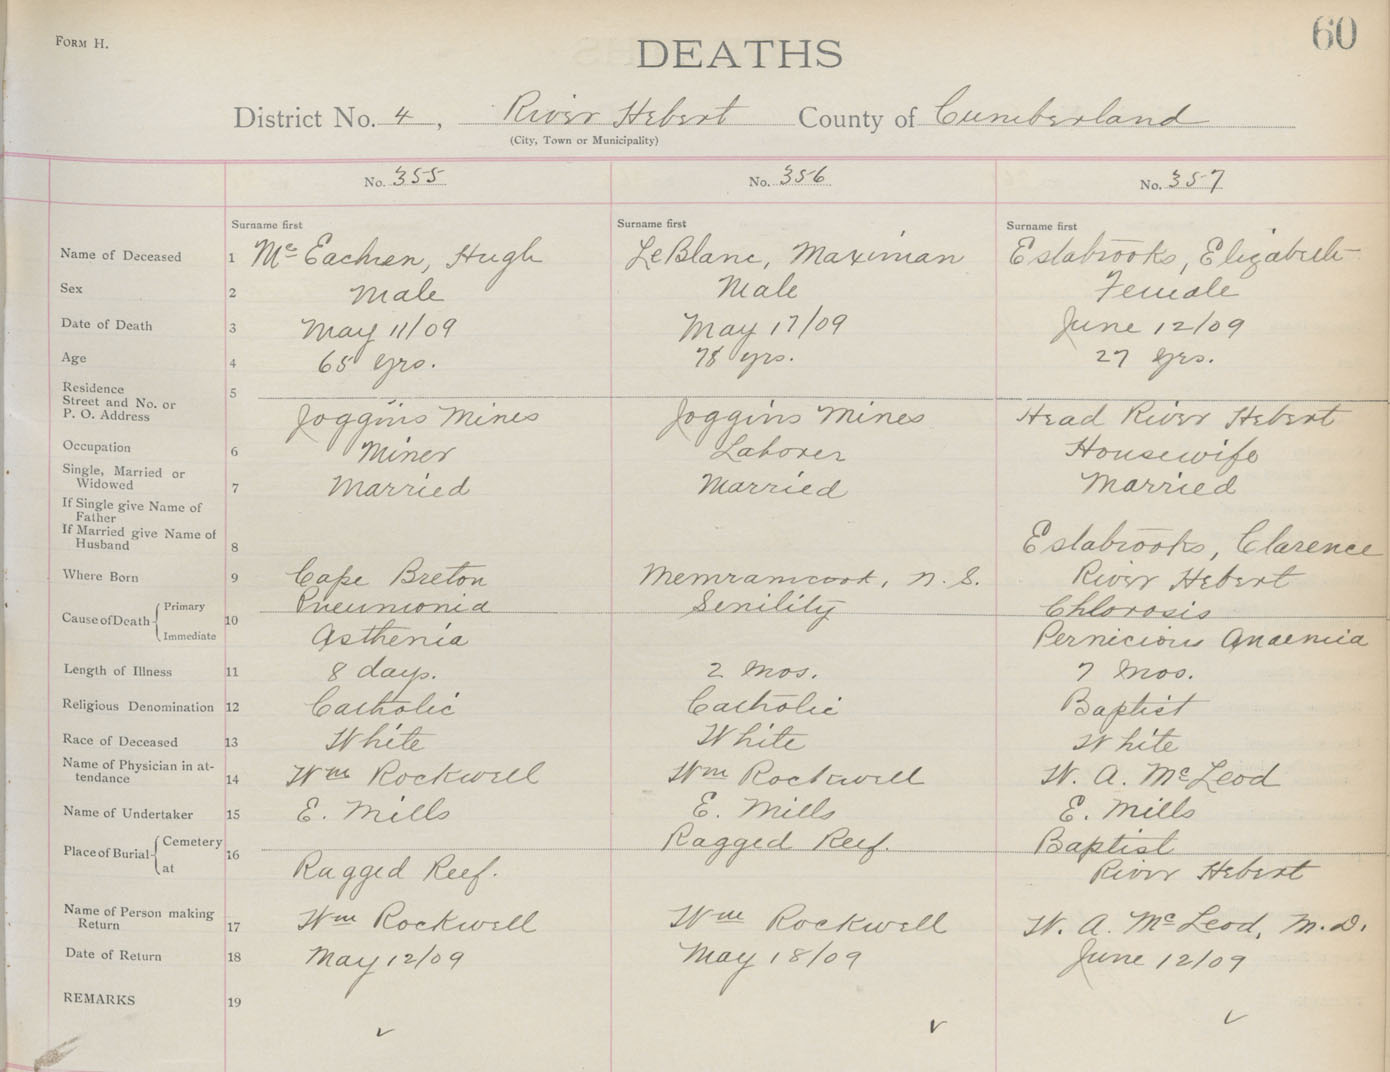 FORM H.
60
DEATHS
District No. 4, River Hebert County of Cumberland
(City, Town or Municipality)
No. 355 No. 356 No. 357
Surname first Surname first Surname first
Name of Deceased 1 McEachren, Hugh LeBlanc, Maximan Estabrooks, Elizabeth
Sex 2 Male Male Female
Date of Death 3 May 11/09 May 17/09 June 12/09
Age 4 65 yrs. 78 yrs. 27 yrs.
Residence
Street and No. or 5
P. O. Address Joggins Mines Joggins Mines Head River Hebert
Occupation 6 Miner Laborer Housewife
Single, Married or
Widowed 7 Married Married Married
If Single give Name of
Father
If Married give Name of
Husband 8 Estabrooks, Clarence
Where Born 9 Cape Breton Memramcook, N. S. River Hebert
Cause of Death 10 Primary Pneumonia Senility Chlorosis
Immediate Asthenia Pernicious Anaemia
Length of Illness 11 8 days. 2 mos. 7 mos.
Religious Denomination 12 Catholic Catholic Baptist
Race of Deceased 13 White White White
Name of Physician in at-
tendance 14 Wm Rockwell Wm Rockwell W. A. McLeod
Name of Undertaker 15 E. Mills E. Mills E. Mills
Place of Burial 16 Cemetery Ragged Reef. Baptist
at Ragged Reef. River Hebert
Name of Person making
Return 17 Wm Rockwell Wm Rockwell W. A. McLeod, M.D.
Date of Return 18 May 12/09 May 18/09 June 12/09
REMARKS 19